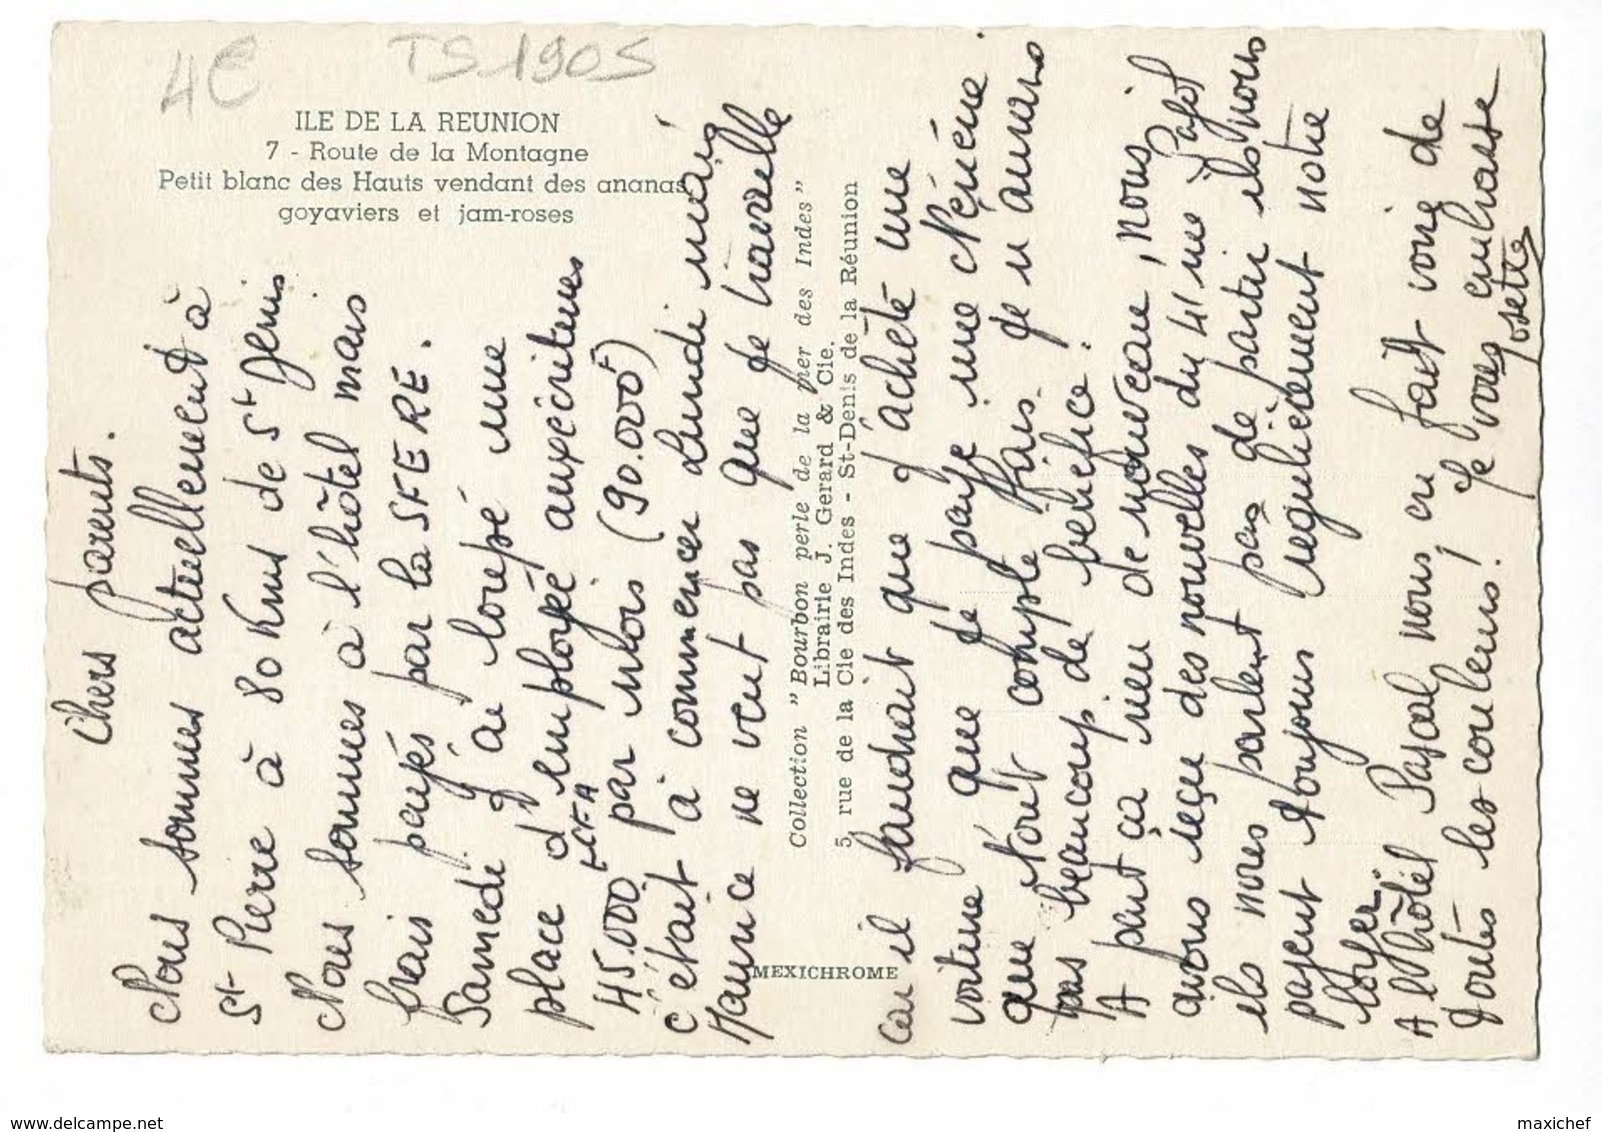 4€ TS 1905
ILE DE LA REUNION
7 - Route de la Montagne
Petit blanc des Hauts vendant des ananas
goyaviers et jam-roses
Chers parents.
Nous sommes actuellement à
St Pierre à 80 Kms de St Denis
Nous sommes à l'hôtel mais
frais payés par la SFERE.
Samedi j'ai loupé une
place d'employée aux écritures
45.000 FCFA par mois (90.000F)
c'était à commencer Lundi mais
Maurice ne veut pas que je travaille
Collection "Bourbon perle de la mer des Indes"
Librairie J. Gerard & Cie.
5, rue de la Cie des Indes - St-Denis de la Réunion
MEXICHROME
car il faudrait que j'achète une
voiture que je paye une Nénène
que tout compte fais je n'aurais
pas beaucoup de bénéfice.
A part ça rien de nouveau, nous
avons reçu des nouvelles du 41 rue Pajol
ils nous parlent pas de partir ils nous
payent toujours régulièrement notre
"loyer"
A l'hôtel Pascal nous en fait voir de
toutes les couleurs! Je vous embrasse
Josette
delcampe.net
maxichef